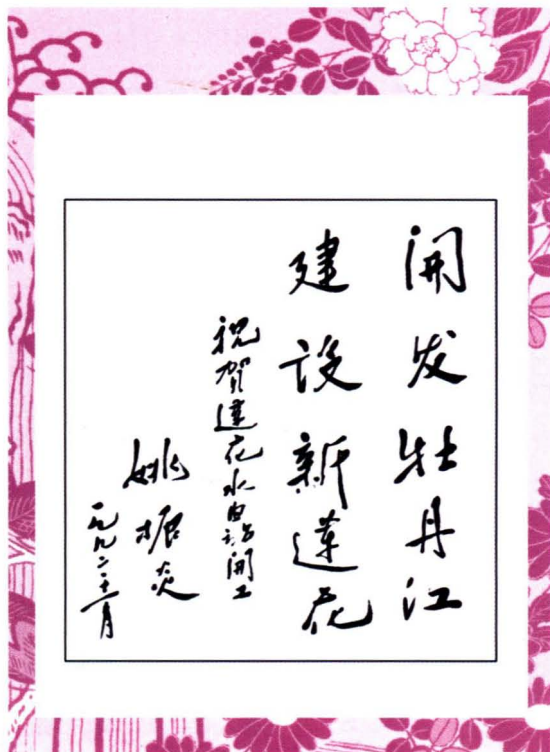 開发牡丹江
建设新莲花
祝贺莲花水电站開工
姚振炎
一九九二·十一月